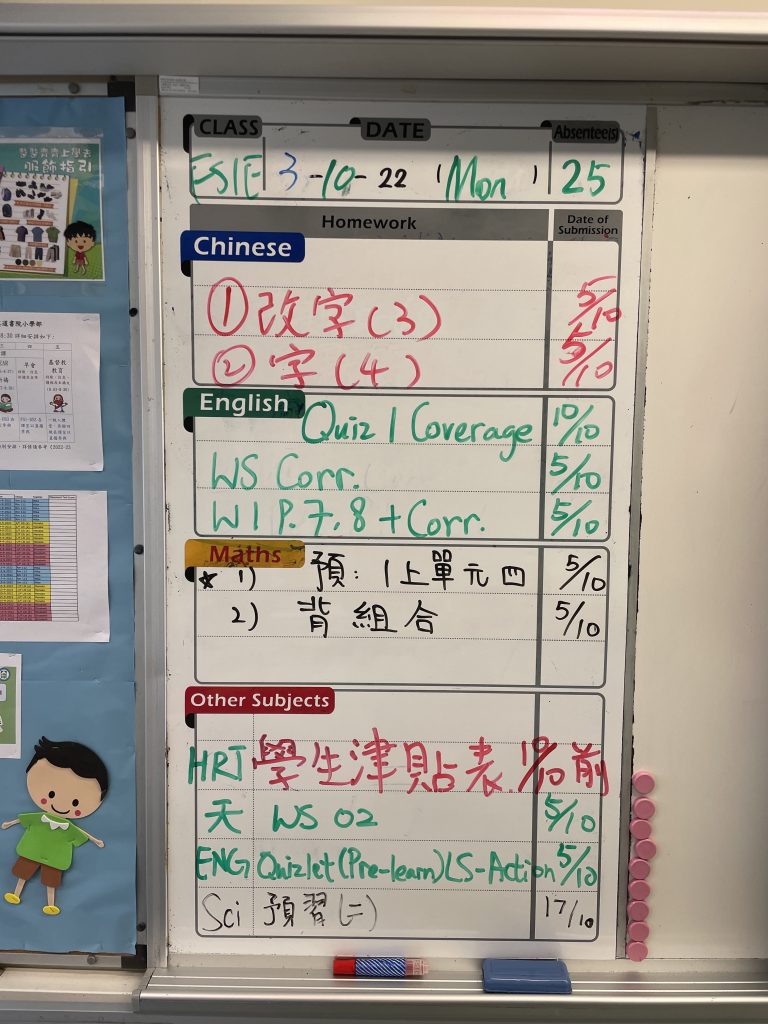 CLASS DATE Absentee(s)
3-10-22 (Mon) 25
Homework Date of Submission
Chinese
① 改字(3) 5/10
② 字(4) 5/10
English
Quiz 1 Coverage 10/10
WS Corr. 5/10
W1 P.7,8 + Corr. 5/10
Maths
☆ 1) 預: 1上單元四 5/10
2) 背組合 5/10
Other Subjects
HRT 學生津貼表 10/10 前
天 WS 02 5/10
ENG Quizlet (Pre-learn) LS-Action 5/10
Sci 預習(二) 17/10
整整齊齊上學去
服飾指引
早會
基督教
教育